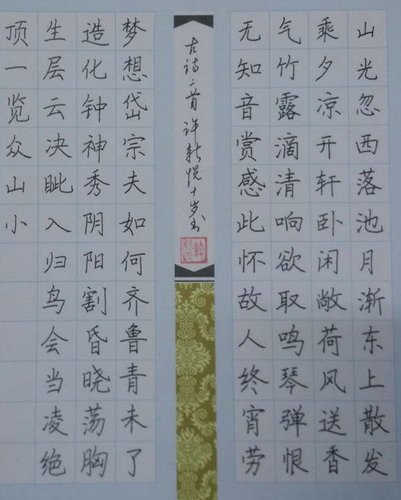 山光忽西落池月渐东上散发
乘夕凉开轩卧闲敞荷风送香
气竹露滴清响欲取鸣琴弹恨
无知音赏感此怀故人终宵劳
梦想岱宗夫如何齐鲁青未了
造化钟神秀阴阳割昏晓荡胸
生层云决眦入归鸟会当凌绝
顶一览众山小
古诗二首许新悦十岁书